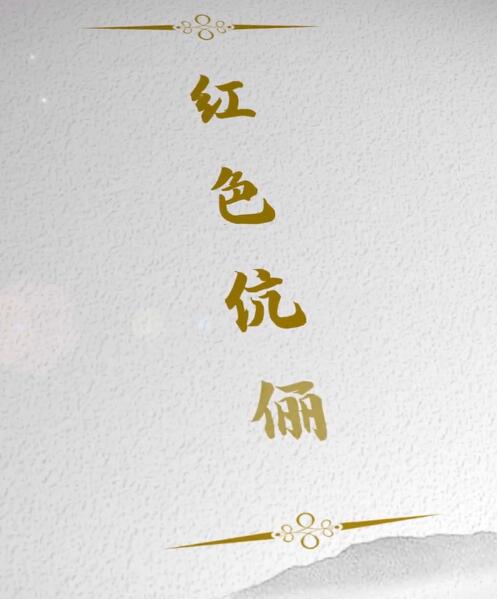 红色伉俪